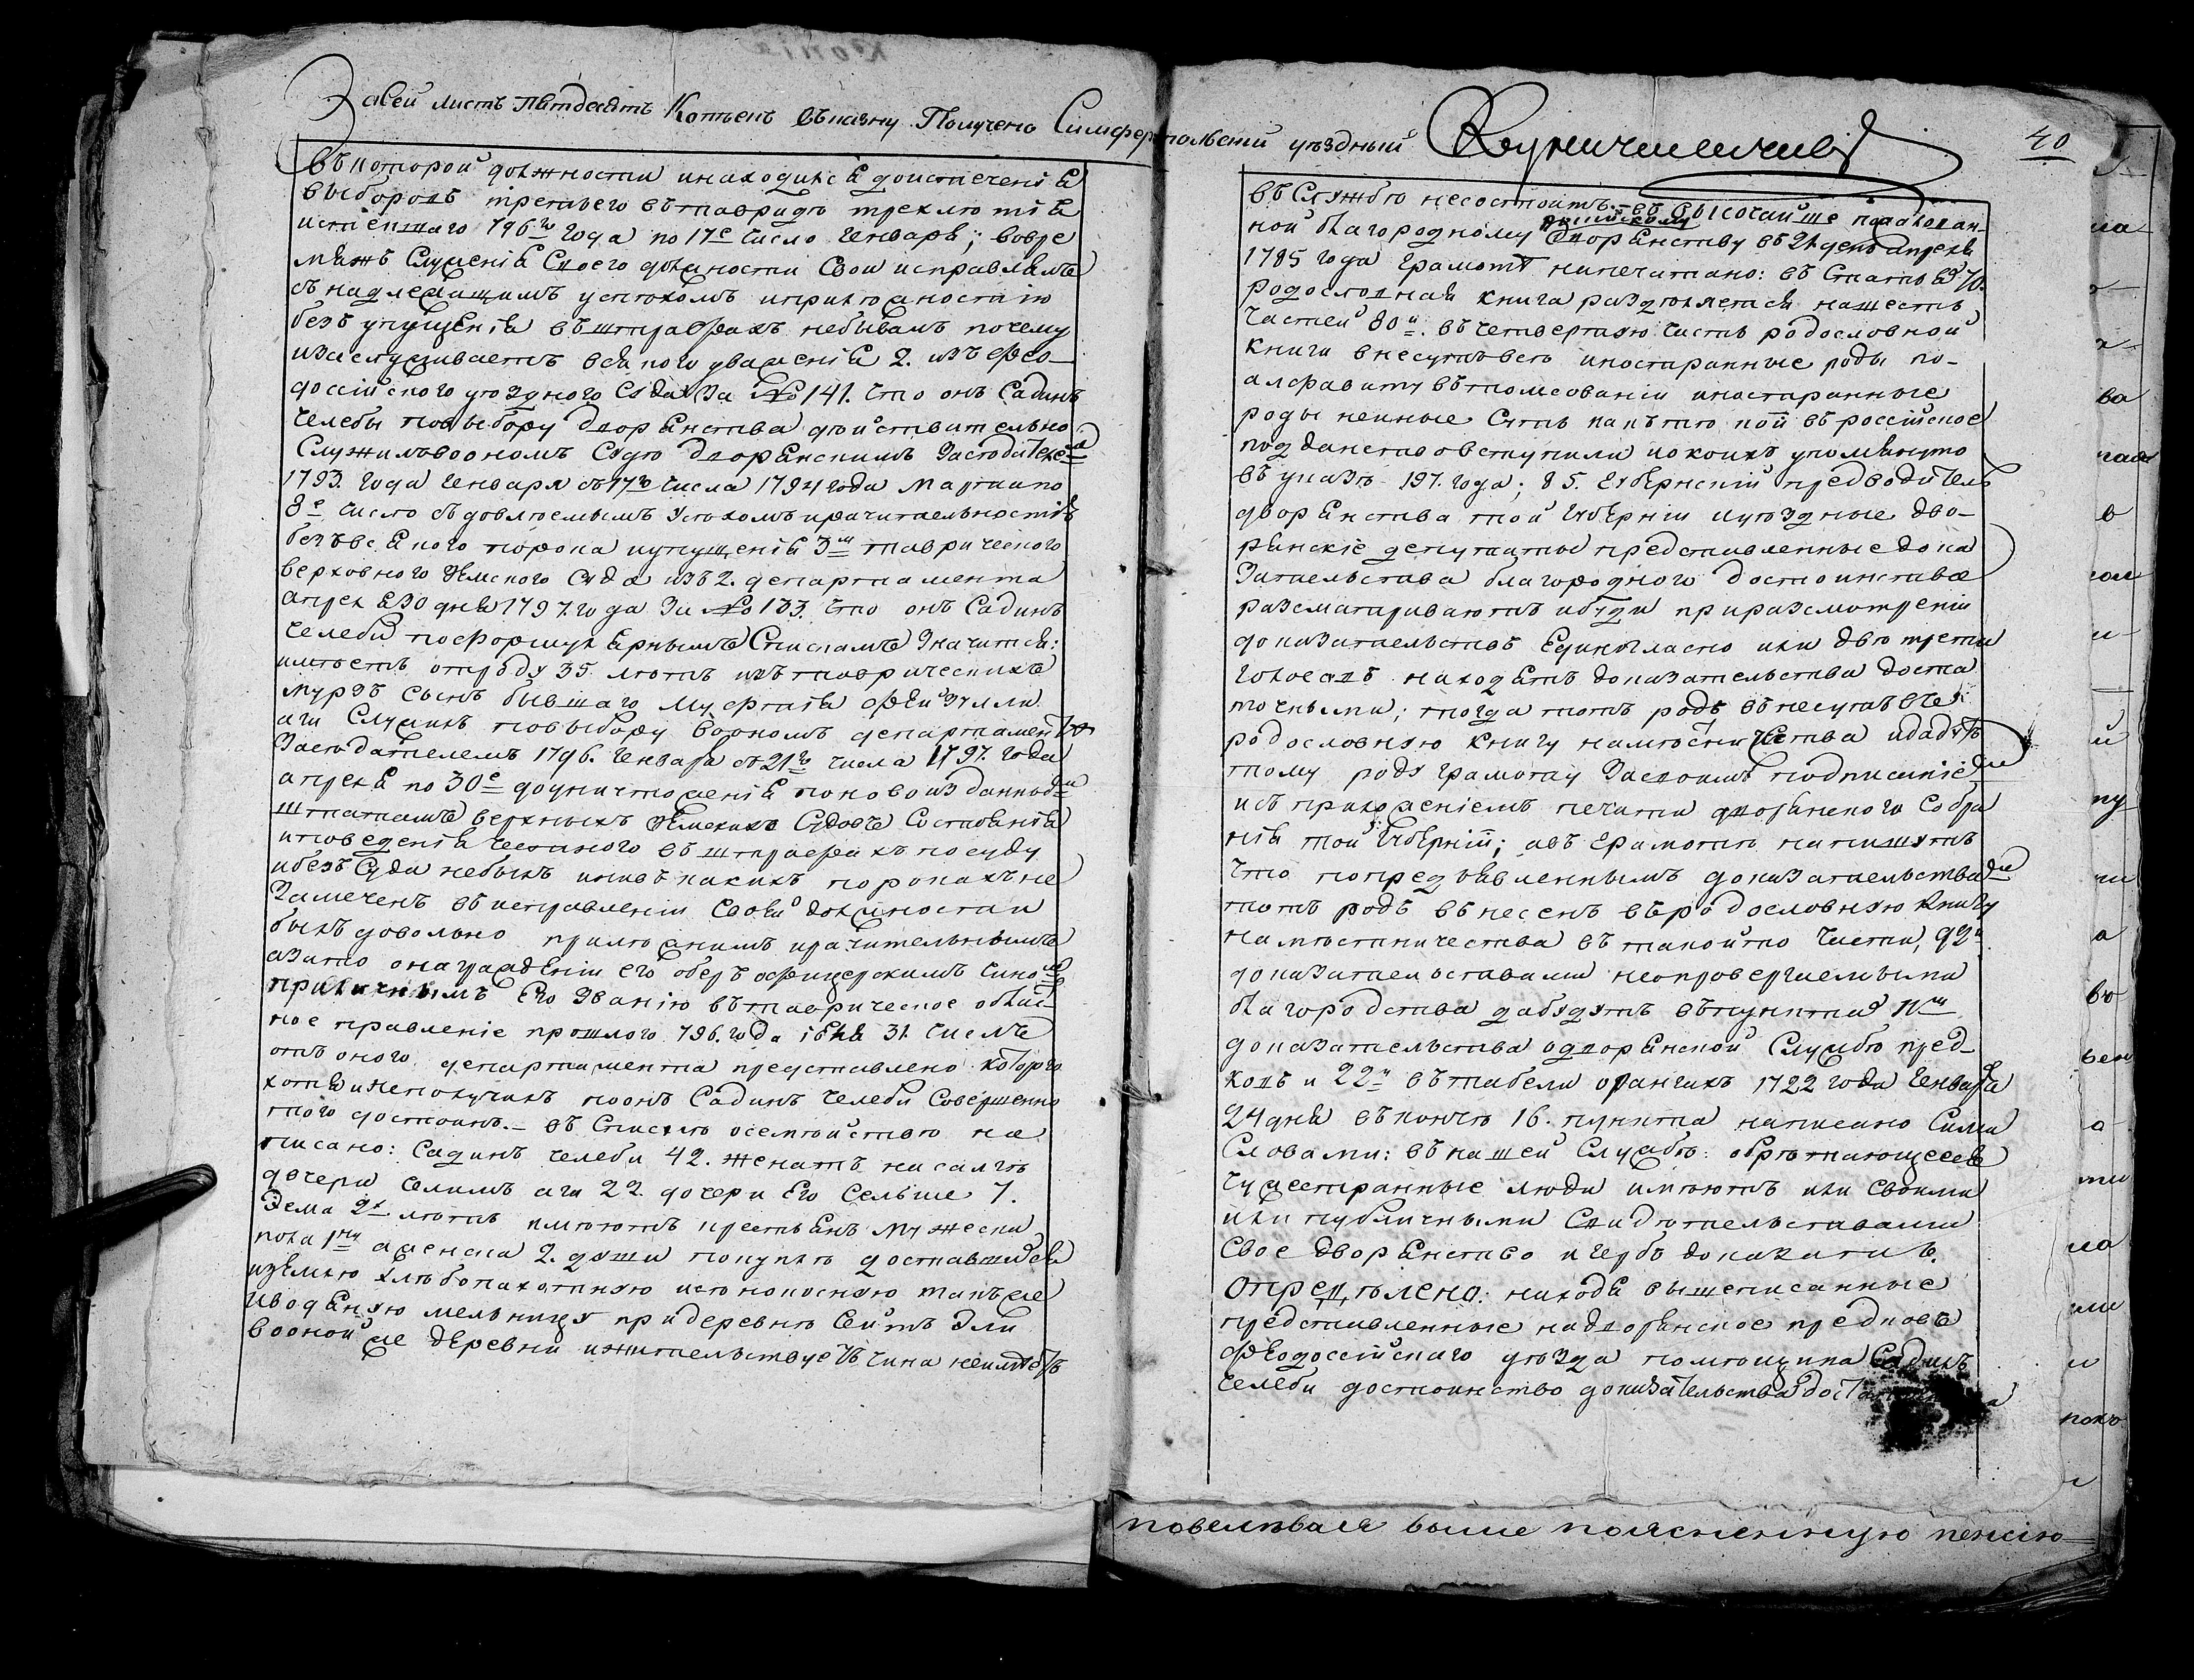 За сей листъ пятдесятъ копѣекъ въ казну получено Симферопольский уѣздный
40
въ которой должности и находился до истеченія
выборовъ третьего въ тавридѣ трехлѣтія
истекшаго 796го года по 17е число Генваря; во вре
мяжъ служенія своего должности свои исправлялъ
съ надлежащимъ успѣхомъ и прилѣжностію
безъ упущенія въ штрафахъ небывалъ почему
и заслуживаетъ всякого уваженія 2. изъ Фео-
досійского уѣздного Суда за №141. что онъ Садикъ
Челеби по выбору дворянства дѣйствительно
служилъ в ономъ Судѣ дворянскимъ Засѣдателемъ
1793. года Генваря съ 17го числа 1794 года Марта по
8е число съ довлѣемымъ успѣхомъ и рачительностію
безъ всякого порока и упущенія 3м таврического
верховного Земского Суда изъ 2. департамента
апреля 30 дня 1797. года за №133. что онъ Садикъ
Челеби по формулярнымъ спискамъ значится:
имѣетъ отроду 35. лѣтъ изъ таврическихъ
мурзъ сынъ бывшаго муфтія Фейзулли
аги служилъ по выбору в ономъ департаментѣ
Засѣдателемъ 1796. Генваря съ 21го числа 1797. года
апреля по 30е до уничтоженія по новоизданнымъ
штатамъ верхныхъ Земскихъ Судовъ состоянія
и поведенія честного въ штрафахъ по суду
и безъ суда небылъ и ни въ какихъ порокахъ не
замеченъ въ исправленіи своей должности
былъ довольно прилѣжнымъ и рачительнымъ
а затѣ о награжденіи его оберъ офицерскимъ чиномъ
приличнымъ его званію въ таврическое облас
ное правленіе прошлого 796. года іюля 31. числъ
отъ оного департамента представлено которого
хотя и неполучилъ но онъ Садикъ Челеби совершенно
того достоинъ. – въ спискѣ о семействѣ на
писано: Садикъ челеби 42. женатъ на салгѣ
дочери Селимъ аги 22. дочери его Сельше 7.
Зема 2х лѣтъ имѣютъ крестьянъ мужеска
пола 1ну а женска 2. души покупкѣ доставшиеся
и землю хлѣбопахотную и сѣнокосную также
и водяную мельницу при деревнѣ Сеитъ Эли
в оной же деревни и жительствуетъ чина неимѣетъ
въ службѣ несостоитъ. – въ высочайше пожалован-
ной благородному россійскому дворянству въ 21 день апреля
1785 года грамотѣ напечатано: въ статьѣ 70.
родословная книга раздѣляется на шесть
частей 80й. въ четвертую часть родословной
книги внесутъ всѣ иностранные роды по-
алфавиту въ толковании иностранные
роды не иные суть какъ тѣ кои въ россійское
подданство вступили и о коихъ упомянуто
въ указѣ 197. года; 85. Губернскій предводитель
дворянства той Губерніи и уѣздные дво-
рянскіе депутаты представленные дока
зательства благородного достоинства
разсматриваютъ и буди при разсмотреніи
доказательствъ единогласно или двѣ трети
голосовъ находятъ доказательства доста
точными; тогда тотъ родъ внесутъ въ
родословную книгу намѣстничества и дадутъ
тому роду грамоту за своимъ подписаніемъ
и съ приложеніемъ печати дворянского собра
нія той Губерніи; а въ грамотѣ напишутъ
что по предъявленнымъ доказательствамъ
тотъ родъ внесенъ въ родословную книгу
намѣстничества въ такойто части, 92й
доказательствами неопровергаемыми
благородства да будутъ въ пункта 11м
доказательства о дворянской службѣ пред-
ковъ и 22й въ табели о рангахъ 1722 года Генваря
24 дня въ кончѣ 16. пункта написано сими
словами: въ нашей службѣ: обрѣтающиеся
чужестранные люди имѣютъ или своими
или публичными свидѣтельствами
свое дворянство и гербъ доказать.
Опредѣлено: находя вышеписанные
представленные на дворянское предковъ
Феодоссійского уѣзда помѣщика Садикъ
челеби достоинство доказательства
повелѣвая выше поясненную пенсію